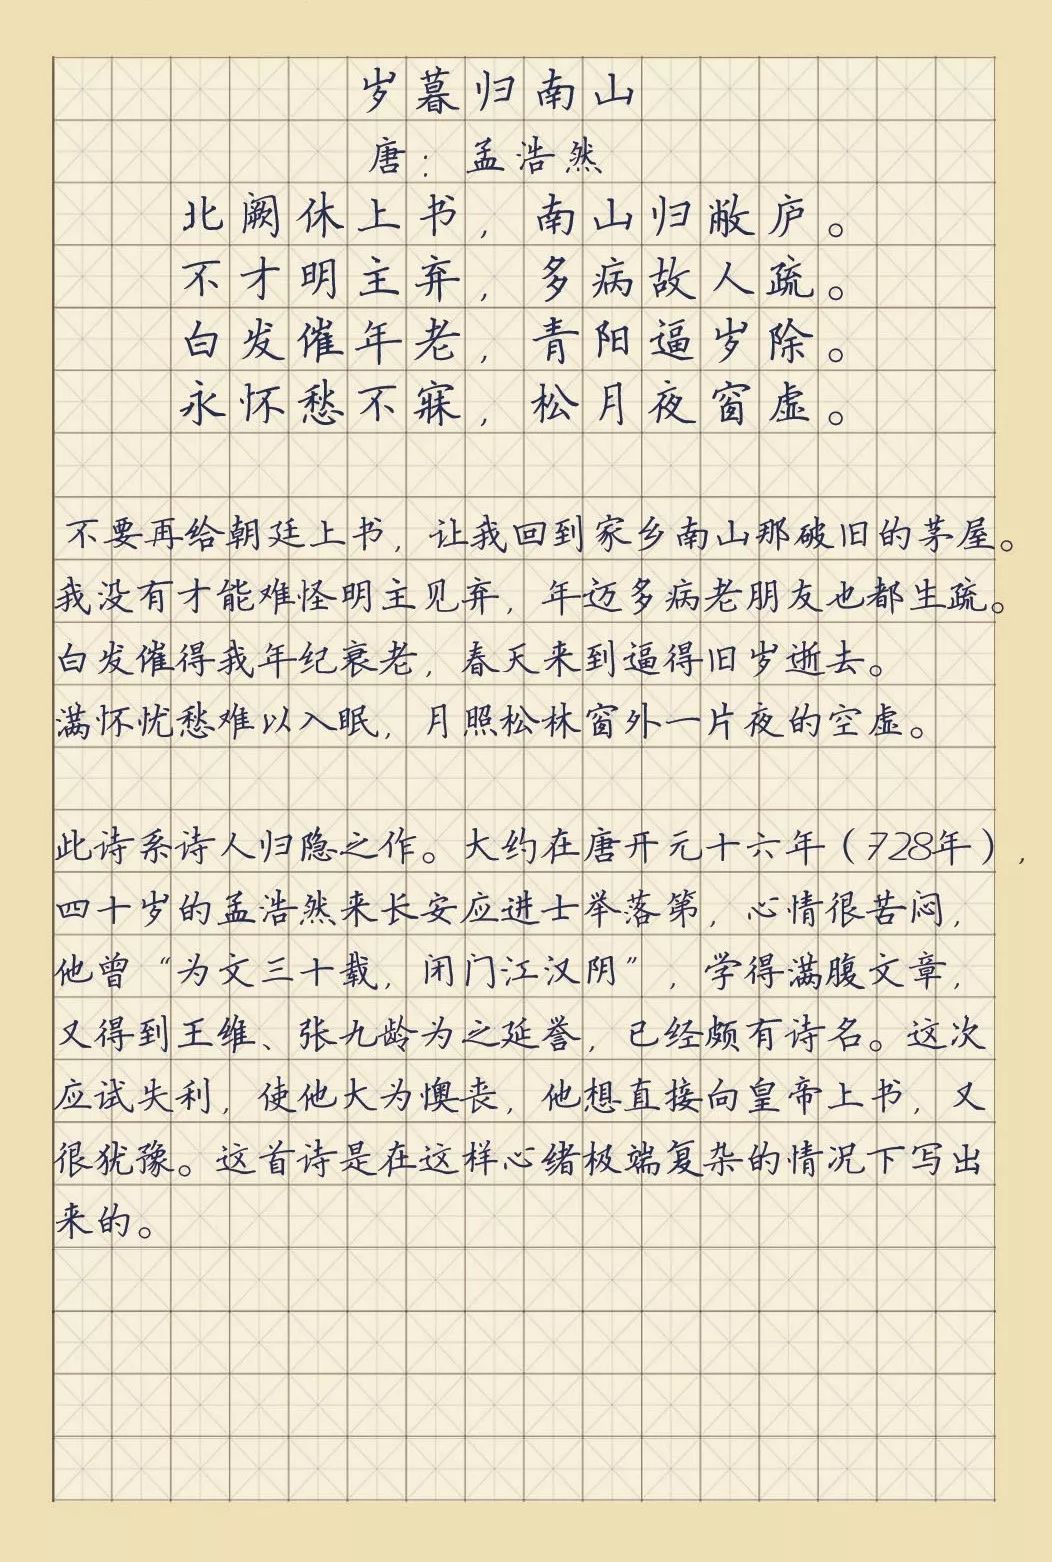 岁暮归南山
唐：孟浩然
北阙休上书，南山归敝庐。
不才明主弃，多病故人疏。
白发催年老，青阳逼岁除。
永怀愁不寐，松月夜窗虚。
不要再给朝廷上书，让我回到家乡南山那破旧的茅屋。
我没有才能难怪明主见弃，年迈多病老朋友也都生疏。
白发催得我年纪衰老，春天来到逼得旧岁逝去。
满怀忧愁难以入眠，月照松林窗外一片夜的空虚。
此诗系诗人归隐之作。大约在唐开元十六年（728年），
四十岁的孟浩然来长安应进士举落第，心情很苦闷，
他曾“为文三十载，闭门江汉阴”，学得满腹文章，
又得到王维、张九龄为之延誉，已经颇有诗名。这次
应试失利，使他大为懊丧，他想直接向皇帝上书，又
很犹豫。这首诗是在这样心绪极端复杂的情况下写出
来的。